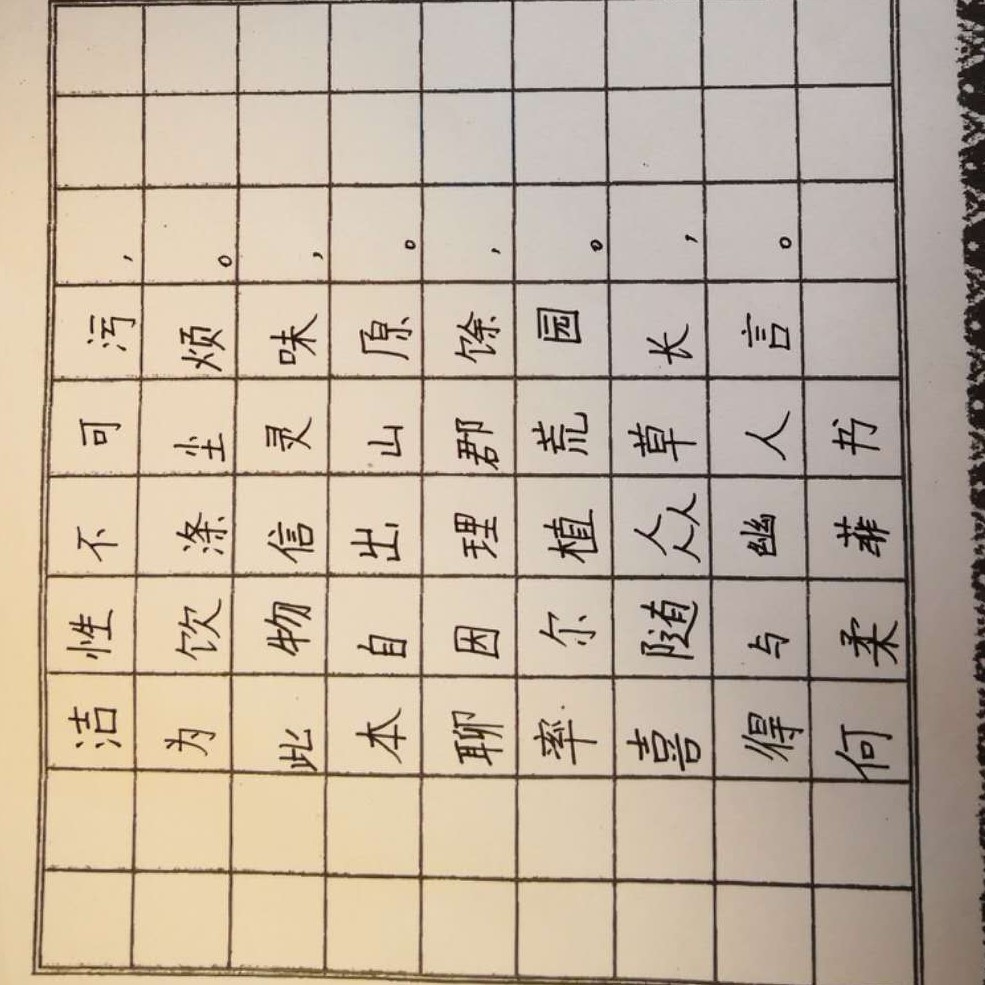 洁性不可污，
为饮涤尘烦。
此物信灵味，
本自出山原。
聊因理郡馀，
率尔植荒园。
喜随众草长，
得与幽人言。
何柔菲书